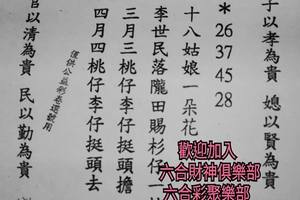 子以孝為貴 媳以賢為貴
*
26
37
45
28
十八姑娘一朵花
李世民落隴田賜杉仔一
三月三桃仔李仔挺頭擔
四月四桃仔李仔挺頭去
僅供公益彩卷選號用
官以清為貴 民以勤為貴
歡迎加入
六合財神俱樂部
六合彩聚樂部